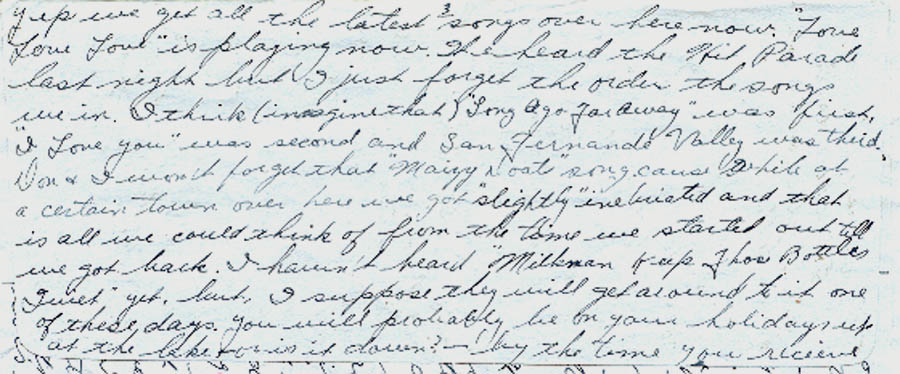 Yup we get all the latest songs over here now. "Love
Love Love" is playing now. We heard the Hit Parade
last night but I just forget the order the songs
we in. I think (imagine that) "Long Ago Far Away" was first,
"I Love you" was second and San Fernando Valley was third.
Don & I won't forget that "Mairzy Doats" song cause while at
a certain town over here we got "slightly" inebriated and that
is all we could think of from the time we started out till
we got back. I havin't heard "Milkman Keep Thos Bottles
Quiet" yet, but, I suppose they will get around to it one
of these days. You will probably be on your holidays up
at the lake - or is it down? - by the time you recieve